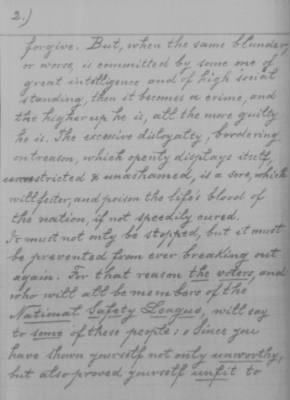 2.)
forgive. But, when the same blunder,
or worse, is committed by some one of
great intelligence and of high social
standing, then it becomes a crime, and
the higher up he is, all the more guilty
he is. The excessive disloyalty, bordering
on treason, which openly displays itself,
unrestricted & unashamed, is a sore, which
will fester, and poison the life's blood of
the nation, if not speedily cured.
It must not only be stopped, but it must
be prevented from ever breaking out
again. For that reason the voters, and
who will all be members of the
National Safety League, will say
to some of these people: Since you
have shown yourself not only unworthy,
but also proved yourself unfit to